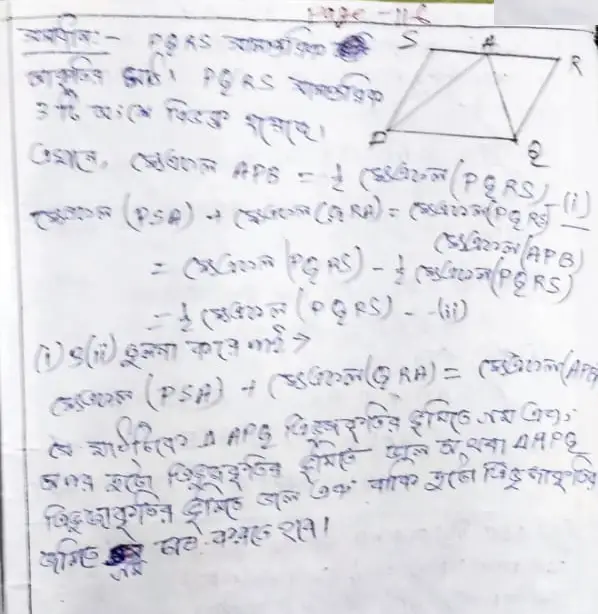 Page - 116
সমাধান:- PQRS সামান্তরিক
S A R
আকৃতির জমি। PQRS সামান্তরিক
3 টি অংশে বিভক্ত হয়েছে।
P Q
এখানে, ক্ষেত্রফল APB = ½ ক্ষেত্রফল (PQRS) -(i)
ক্ষেত্রফল (PSA) + ক্ষেত্রফল (QRA) = ক্ষেত্রফল (PQRS) -
ক্ষেত্রফল (APB)
= ক্ষেত্রফল (PQRS) - ½ ক্ষেত্রফল (PQRS)
= ½ ক্ষেত্রফল (PQRS) - -(ii)
(i) ও (ii) তুলনা করে পাই →
ক্ষেত্রফল (PSA) + ক্ষেত্রফল (QRA) = ক্ষেত্রফল (APB
Δ APQ ত্রিভুজাকৃতির জমিতে গম এবং
অপর দুটো ত্রিভুজাকৃতির জমিতে ডাল অথবা ΔAPQ
ত্রিভুজাকৃতির জমিতে ডাল এবং বাকি দুটো ত্রিভুজাকৃতির
জমিতে গম চাষ করতে হবে।